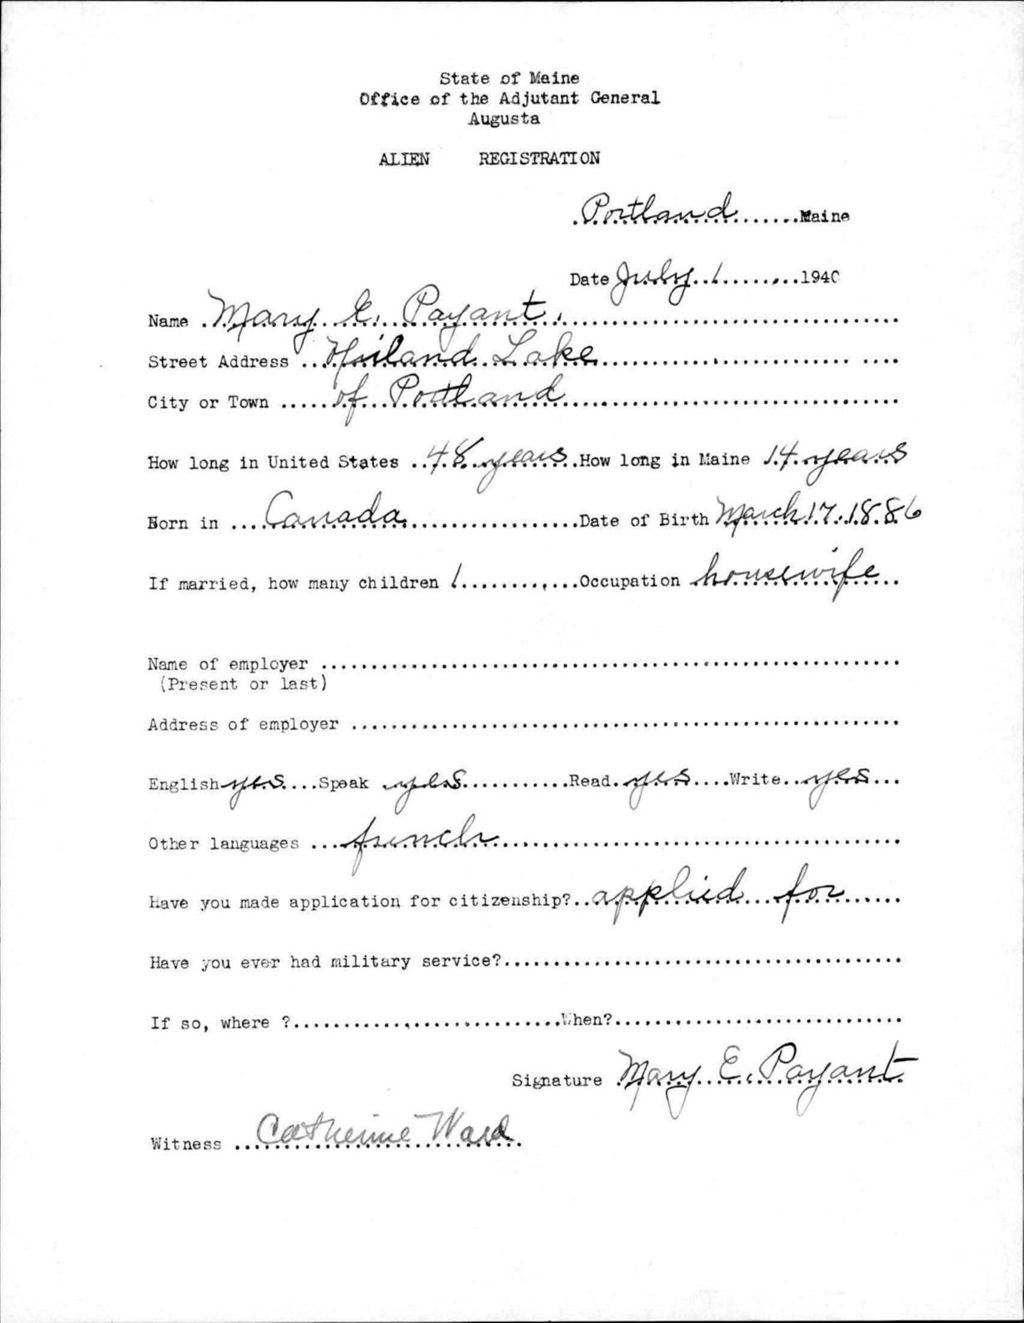 State of Maine
Office of the Adjutant General
Augusta
ALIEN REGISTRATION
Portland Maine
Date July 1 1940
Name Mary E. Payant.
Street Address Hiland Lake
City or Town of Portland
How long in United States 48 years How long in Maine 14 years
Born in Canada Date of Birth March 17, 1886
If married, how many children 1 Occupation housewife
Name of employer
(Present or last)
Address of employer
English yes Speak yes Read yes Write yes
Other languages french
Have you made application for citizenship? applied for
Have you ever had military service?
If so, where ? When?
Signature Mary E. Payant
Witness Catherine Ward